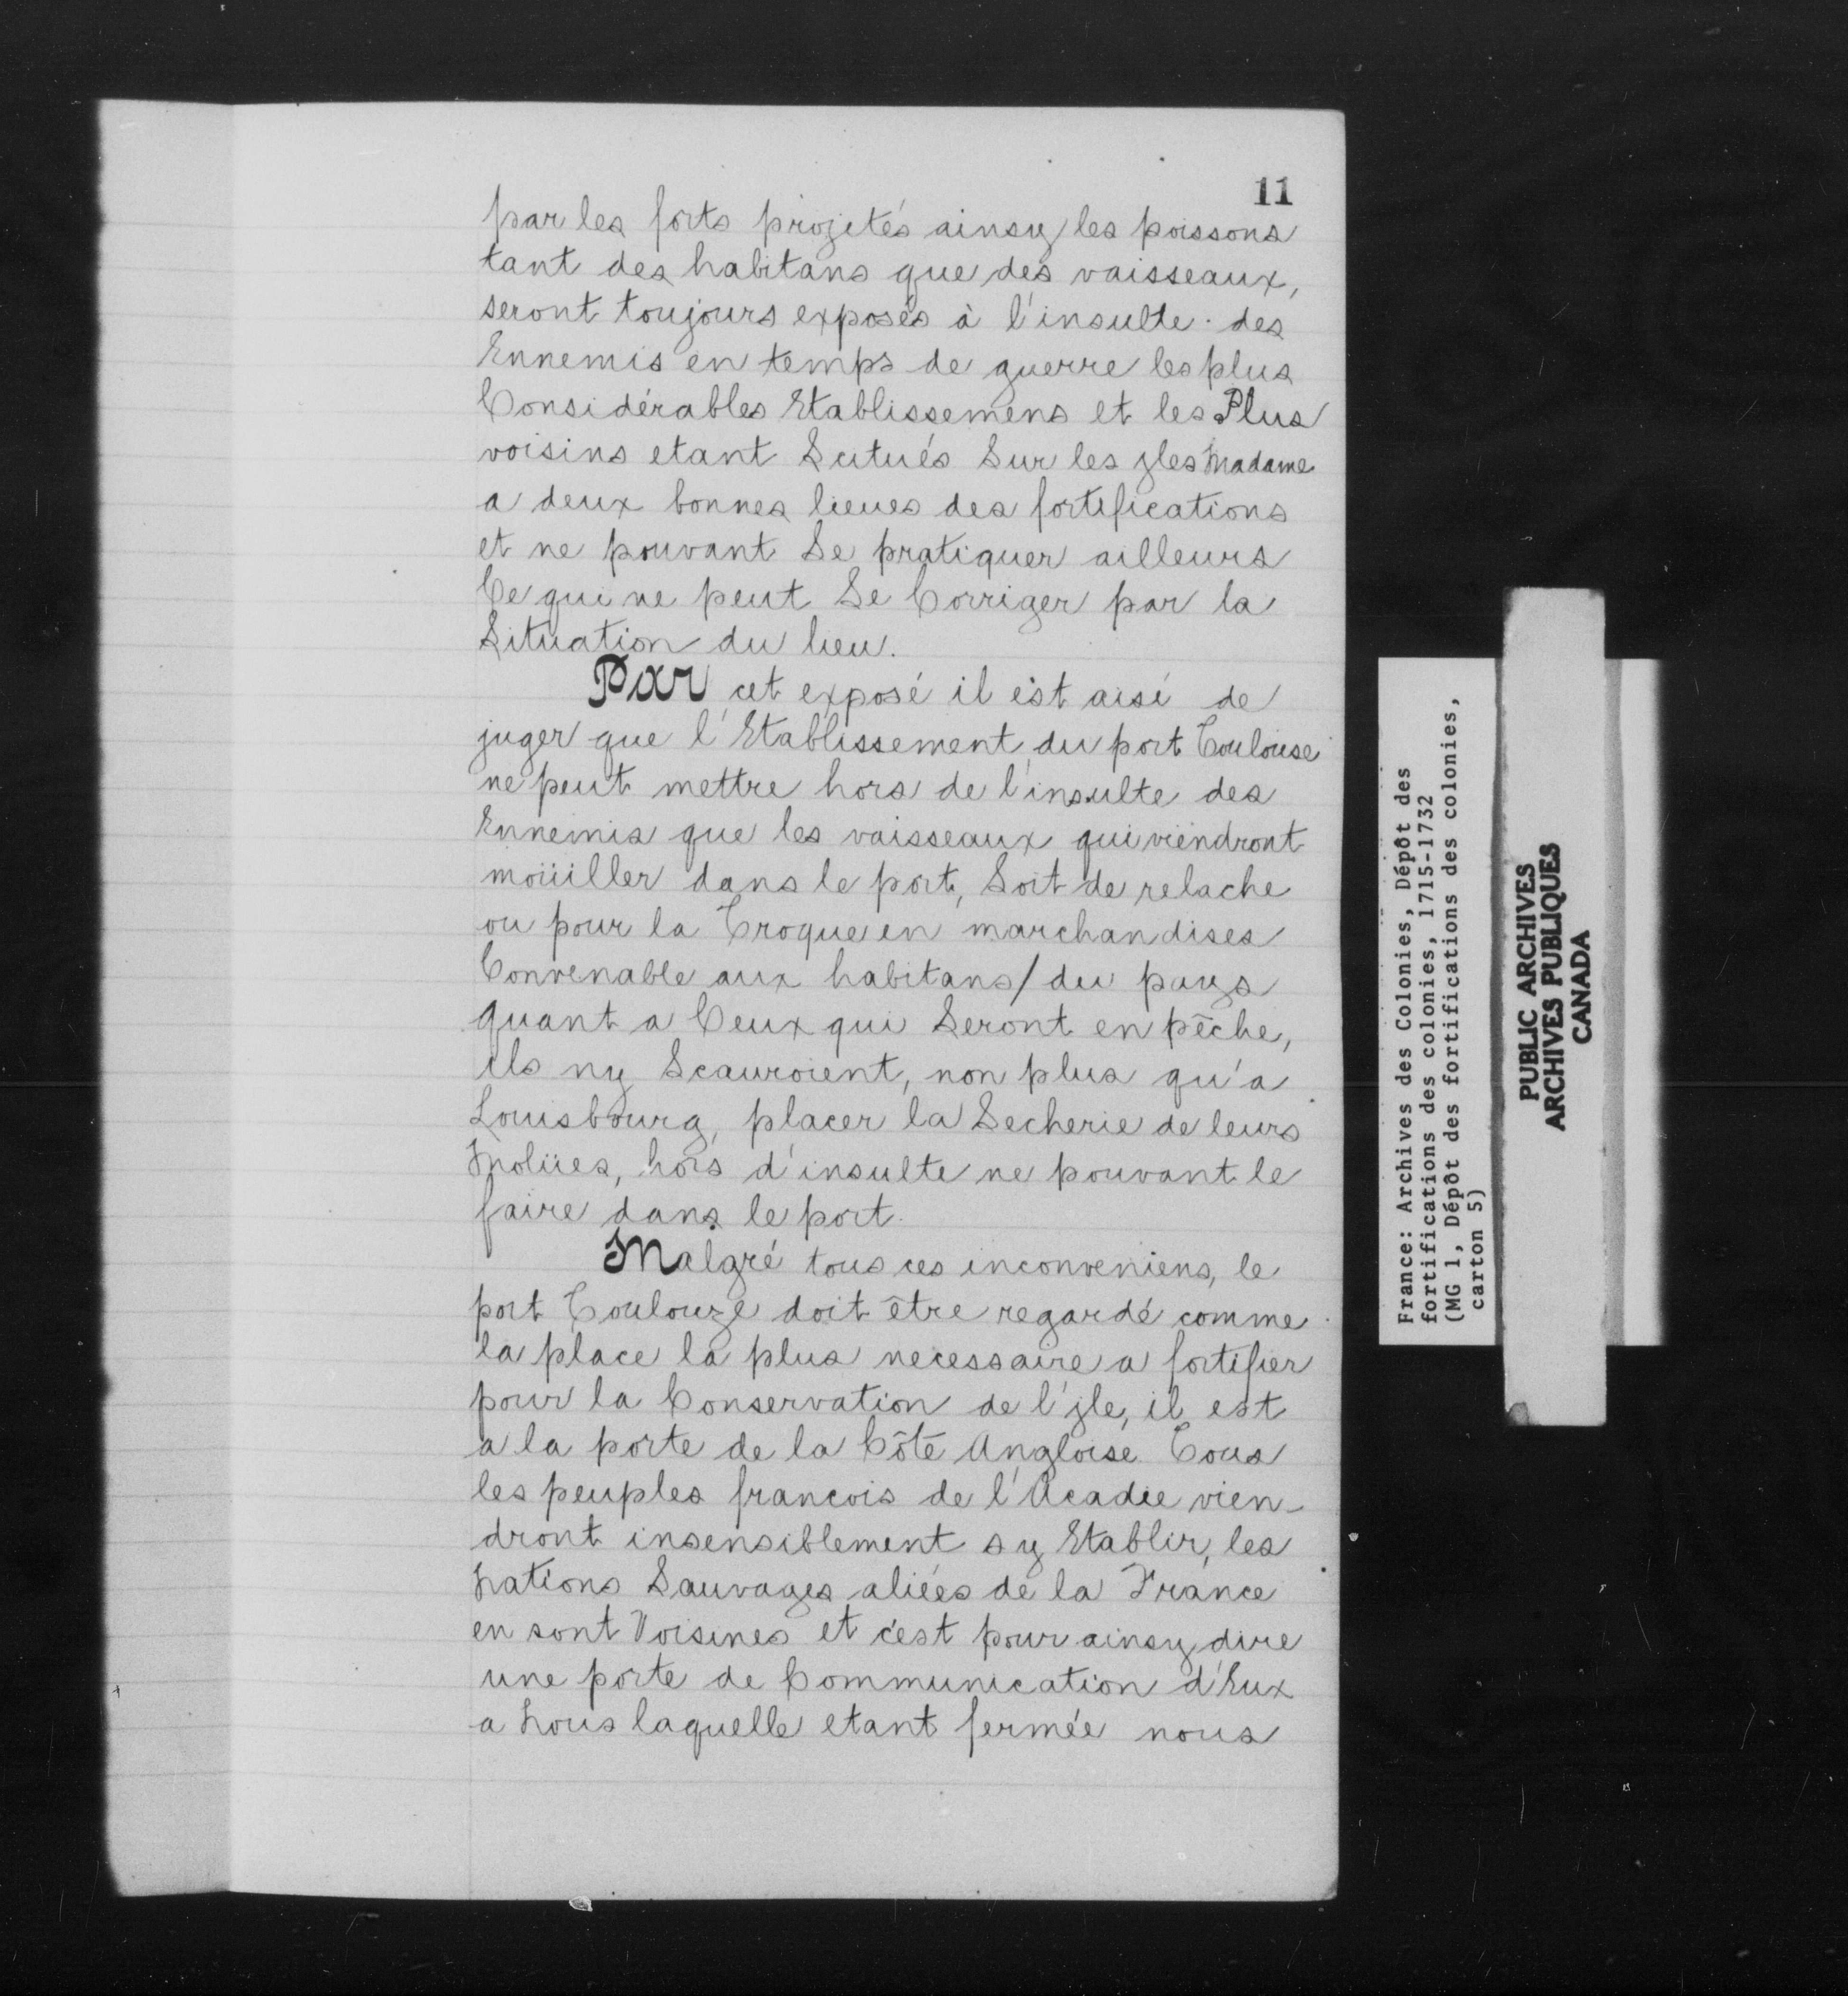 11
par les forts projetés ainsy les poissons
tant des habitans que des vaisseaux,
seront toujours exposés à l'insulte des
Ennemis en temps de guerre les plus
Considérables Etablissemens et les Plus
voisins etant Scitués Sur les jles Madame
a deux bonnes lieues des fortifications
et ne pouvant Se pratiquer ailleurs
Ce qui ne peut Se Corriger par la
Situation du lieu.
Par cet exposé il est aisé de
juger que l'Etablissement du port Toulouse
ne peut mettre hors de l'insulte des
Ennemis que les vaisseaux qui viendront
moüiller dans le port, Soit de relache
ou pour la Troque en marchandises
Convenable aux habitans/ du pays
quant a Ceux qui Seront en pêche,
ils ny Scauroient, non plus qu'a
Louisbourg, placer la Secherie de leurs
Molües, hors d'insulte ne pouvant le
faire dans le port.
Malgré tous ces inconveniens, le
port Toulouze doit être regardé comme
la place la plus necessaire a fortifier
pour la Conservation de l'jle, il est
a la porte de la Côte Angloise Tous
les peuples francois de l'Acadie vien-
dront insensiblement sy Etablir, les
Nations Sauvages aliées de la France
en sont Voisines et c'est pour ainsy dire
une porte de Communication d'Eux
a Nous laquelle etant fermée nous
France: Archives des Colonies, Dépôt des
fortifications des colonies, 1715-1732
(MG 1, Dépôt des fortifications des colonies,
carton 5)
PUBLIC ARCHIVES
ARCHIVES PUBLIQUES
CANADA